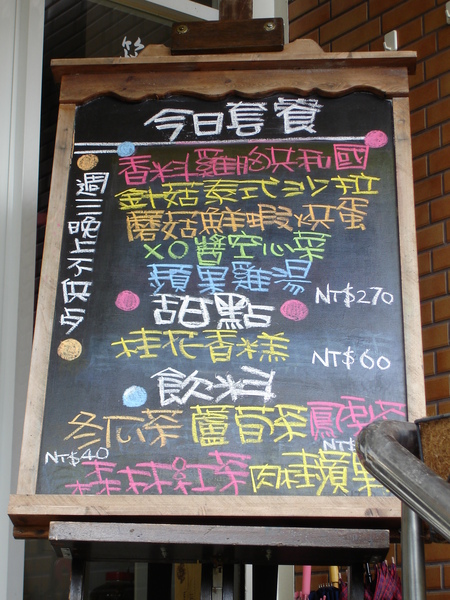 今日套餐
香料雞胸共和國
針菇泰式沙拉
蘑菇鮮蝦烘蛋
XO醬空心菜
蘋果雞湯
NT$270
週三晚上不供占
甜點
桂花香糕
NT$60
飲料
冬瓜茶 蘆筍茶 鳳梨茶
NT$40 NT$
桂紅茶 肉桂蘋果